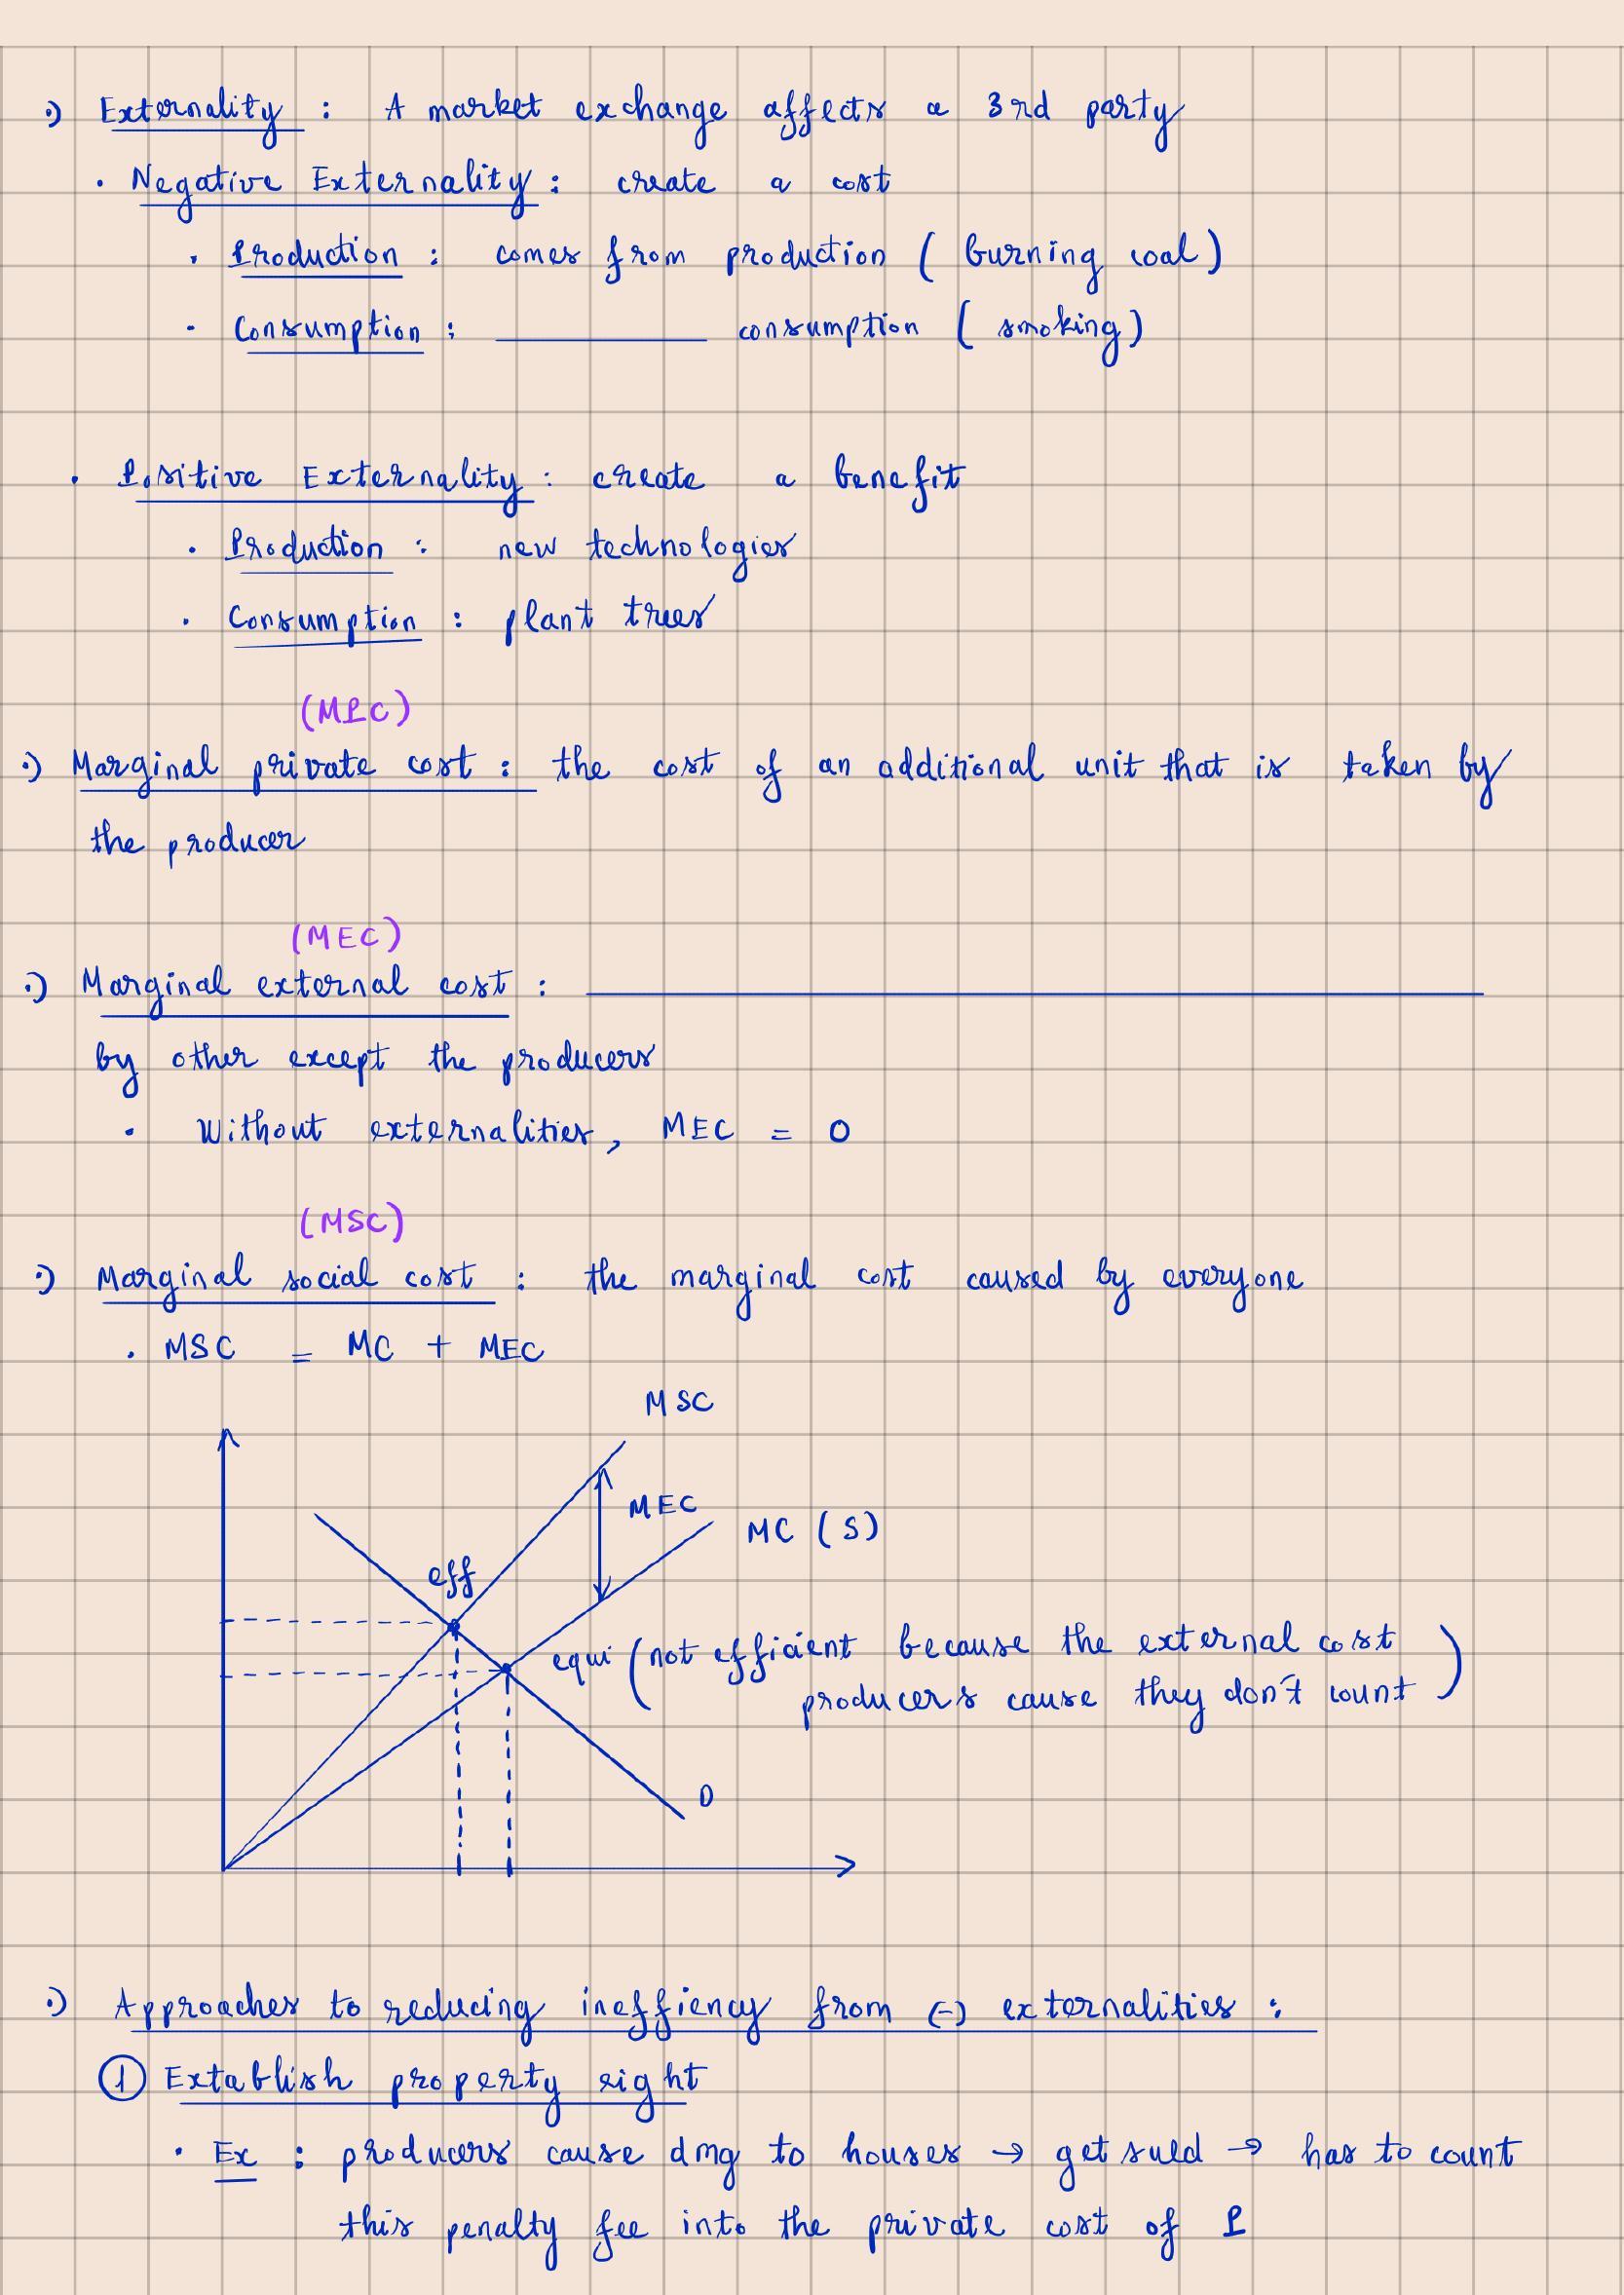 ·) Externality : A market exchange affects a 3rd party
· Negative Externality : create a cost
· Production : comes from production ( burning coal )
· Consumption : ________ consumption ( smoking )
· Positive Externality : create a benefit
· Production : new technologies
· Consumption : plant trees
(MPC)
·) Marginal private cost : the cost of an additional unit that is taken by
the producer
(MEC)
·) Marginal external cost : ________
by other except the producers
· Without externalities, MEC = 0
(MSC)
·) Marginal social cost : the marginal cost caused by everyone
· MSC = MC + MEC
MSC
MEC
MC (S)
eff
equi (not efficient because the external cost
producers cause they don't count )
D
·) Approaches to reducing ineffiency from (-) externalities :
① Extablish property right
· Ex : producers cause dmg to houses → get sued → has to count
this penalty fee into the private cost of P